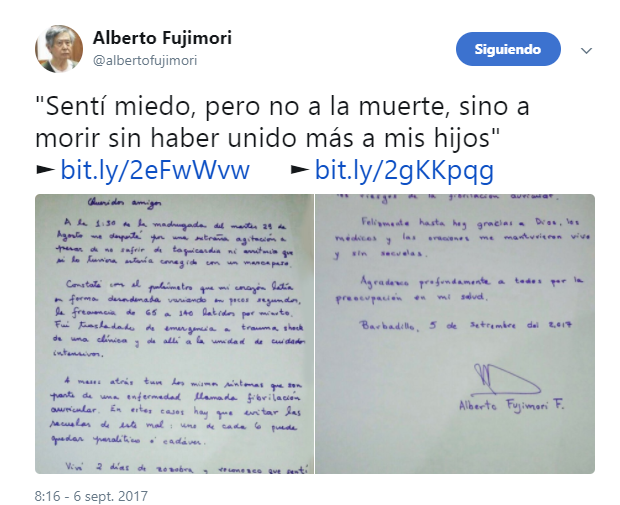 Alberto Fujimori
@albertofujimori
Siguiendo
"Sentí miedo, pero no a la muerte, sino a
morir sin haber unido más a mis hijos"
►bit.ly/2eFwWvw ►bit.ly/2gKKpqg
Queridos amigos
A la 1:30 de la madrugada del martes 29 de
Agosto me desperté por una extraña agitación a
pesar de no sufrir de taquicardia ni arritmia que
si la tuviera estaría corregido con un marcapaso.
Constaté con el pulsímetro que mi corazón latía
en forma desordenada variando en pocos segundos,
la frecuencia de 65 a 140 latidos por minuto.
Fui trasladado de emergencia a trauma shock
de una clínica y de allí a la unidad de cuidados
intensivos.
4 meses atrás tuve los mismos síntomas que son
parte de una enfermedad llamada fibrilación
auricular. En estos casos hay que evitar las
secuelas de este mal; uno de cada 6 puede
quedar paralítico o cadáver.
Viví 2 días de zozobra y reconozco que sentí
riesgos de la fibrilación auricular.
Felizmente hasta hoy gracias a Dios, los
médicos y las oraciones me mantuvieron vivo
y sin secuelas.
Agradezco profundamente a todos por la
preocupación en mi salud.
Barbadillo, 5 de Setiembre del 2,017
Alberto Fujimori F.
8:16 - 6 sept. 2017